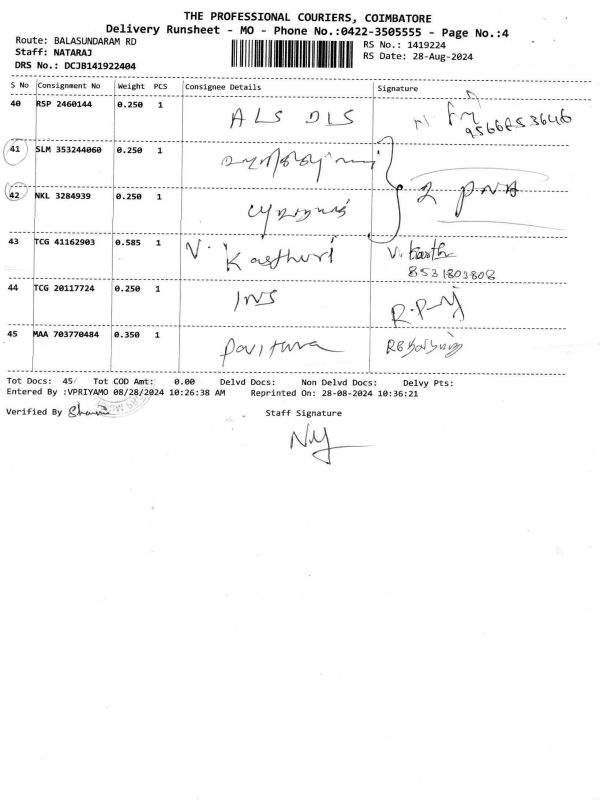 THE PROFESSIONAL COURIERS, COIMBATORE
Delivery Runsheet - MO - Phone No.:0422-3505555 - Page No.:4
Route: BALASUNDARAM RD
RS No.: 1419224
Staff: NATARAJ
RS Date: 28-Aug-2024
DRS No.: DCJB141922404
S No Consignment No Weight PCS Consignee Details Signature
40 RSP 2460144 0.250 1 ALS DLS
9566853646
41 SLM 353244060 0.250 1
42 NKL 3284939 0.250 1
43 TCG 41162903 0.585 1 V. Kasthuri V.
8531803808
44 TCG 20117724 0.250 1 INS
45 MAA 703770484 0.350 1 Pavithra
Tot Docs: 45/ Tot COD Amt: 0.00 Delvd Docs: Non Delvd Docs: Delvy Pts:
Entered By :VPRIYAMO 08/28/2024 10:26:38 AM Reprinted On: 28-08-2024 10:36:21
Verified By
Staff Signature